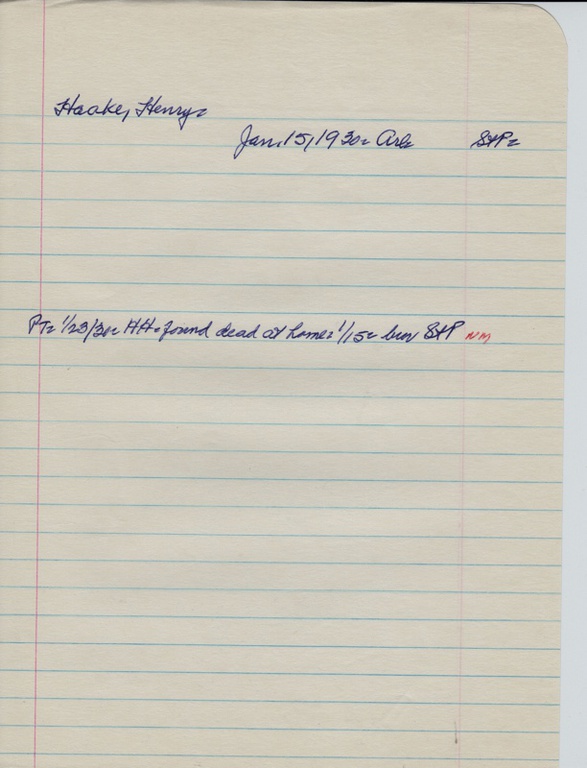 Haake, Henry-
Jan. 15, 1930- Arl- StP-
PT- 1/23/30- HH- found dead at home- 1/15- bur StP NM